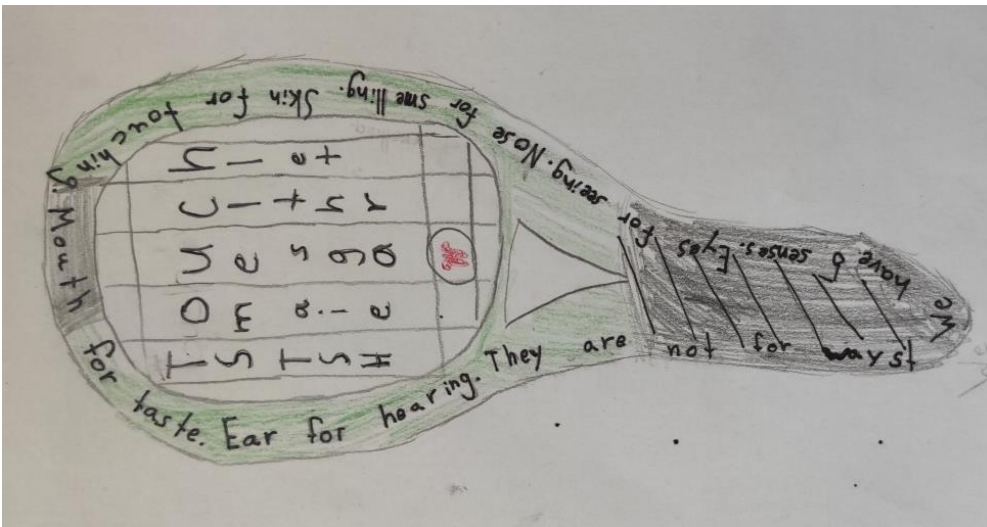 We have senses. Eyes for seeing. Nose for smelling. Skin for touching. Mouth for taste. Ear for hearing. They are not for
TOUCh
Smell
Taste
Sight
Hear